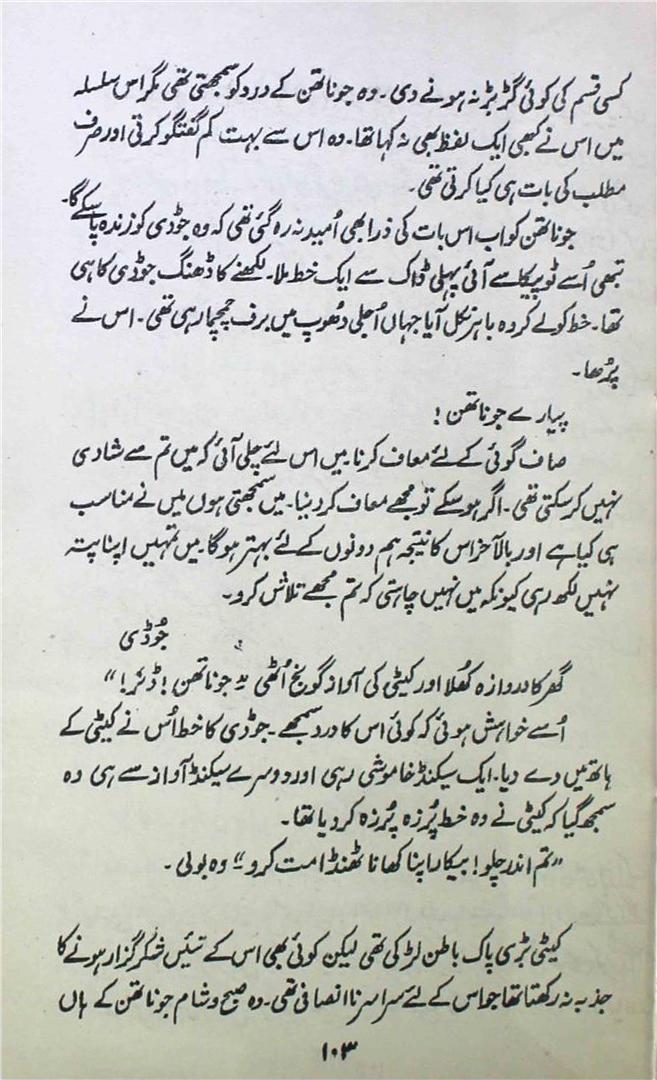 کسی قسم کی کوئی گڑبڑ نہ ہونے دی۔ وہ جوناتھن کے درد کو سمجھتی تھی مگر اس سلسلہ
میں اس نے کبھی ایک لفظ بھی نہ کہا تھا۔ وہ اس سے بہت کم گفتگو کرتی اور صرف
مطلب کی بات ہی کیا کرتی تھی۔
جوناتھن کو اب اس بات کی ذرا بھی اُمید نہ رہ گئی تھی کہ وہ جوڈی کو زندہ پا سکے گا۔
تبھی اُسے ٹوپیکا سے آئی پہلی ڈاک سے ایک خط ملا۔ لکھنے کا ڈھنگ جوڈی کا ہی
تھا۔ خط کو لے کر وہ باہر نکل آیا جہاں اُجلی دُھوپ میں برف چمچما رہی تھی۔ اس نے
پڑھا۔
پیارے جوناتھن!
صاف گوئی کے لئے معاف کرنا۔ میں اس لئے چلی آئی کہ میں تم سے شادی
نہیں کر سکتی تھی۔ اگر ہو سکے تو مجھے معاف کر دینا۔ میں سمجھتی ہوں میں نے مناسب
ہی کیا ہے اور بالآخر اس کا نتیجہ ہم دونوں کے لئے بہتر ہو گا۔ میں تمہیں اپنا پتہ
نہیں لکھ رہی کیونکہ میں نہیں چاہتی کہ تم مجھے تلاش کرو۔
جُوڈی
گھر کا دروازہ کھُلا اور کیٹی کی آواز گونج اُٹھی ”جوناتھن! ڈئر!“
اُسے خواہش ہوئی کہ کوئی اس کا درد سمجھے۔ جوڈی کا خط اُس نے کیٹی کے
ہاتھ میں دے دیا۔ ایک سیکنڈ خاموشی رہی اور دوسرے سیکنڈ آواز سے ہی وہ
سمجھ گیا کہ کیٹی نے وہ خط پُرزہ پُرزہ کر دیا تھا۔
”تم اندر چلو! بیکار اپنا کھانا ٹھنڈا مت کرو“ وہ بولی۔
کیٹی بڑی پاک باطن لڑکی تھی لیکن کوئی بھی اس کے تئیں شکر گزار ہونے کا
جذبہ نہ رکھتا تھا جو اس کے لئے سراسر ناانصافی تھی۔ وہ صبح و شام جوناتھن کے ہاں
۱۰۳